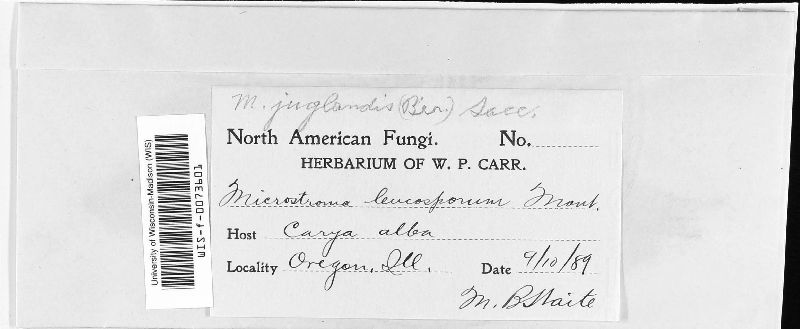 M. juglandis (Bér.) Sacc.
North American Fungi. No.
HERBARIUM OF W. P. CARR.
Microstroma leucosporum Mont.
Host Carya alba
Locality Oregon, Ill. Date 9/10/89
M. B. Waite
University of Wisconsin-Madison (WIS)
WIS-f-0073601